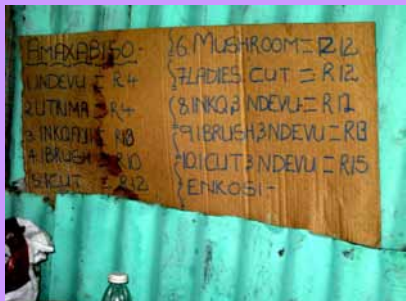 AMAXABISO-
1.INDEVU = R4
2.UTRIMA = R4
4.IBRUSH = R10
5.ICUT = R12
6.MUSHROOM = R12
7.LADIES.CUT = R12
8.INKQ,3 NDEVU = R12
9.IBRUSH,3NDEVU = R13
10.ICUT 3 NDEVU = R15
ENKOSI-